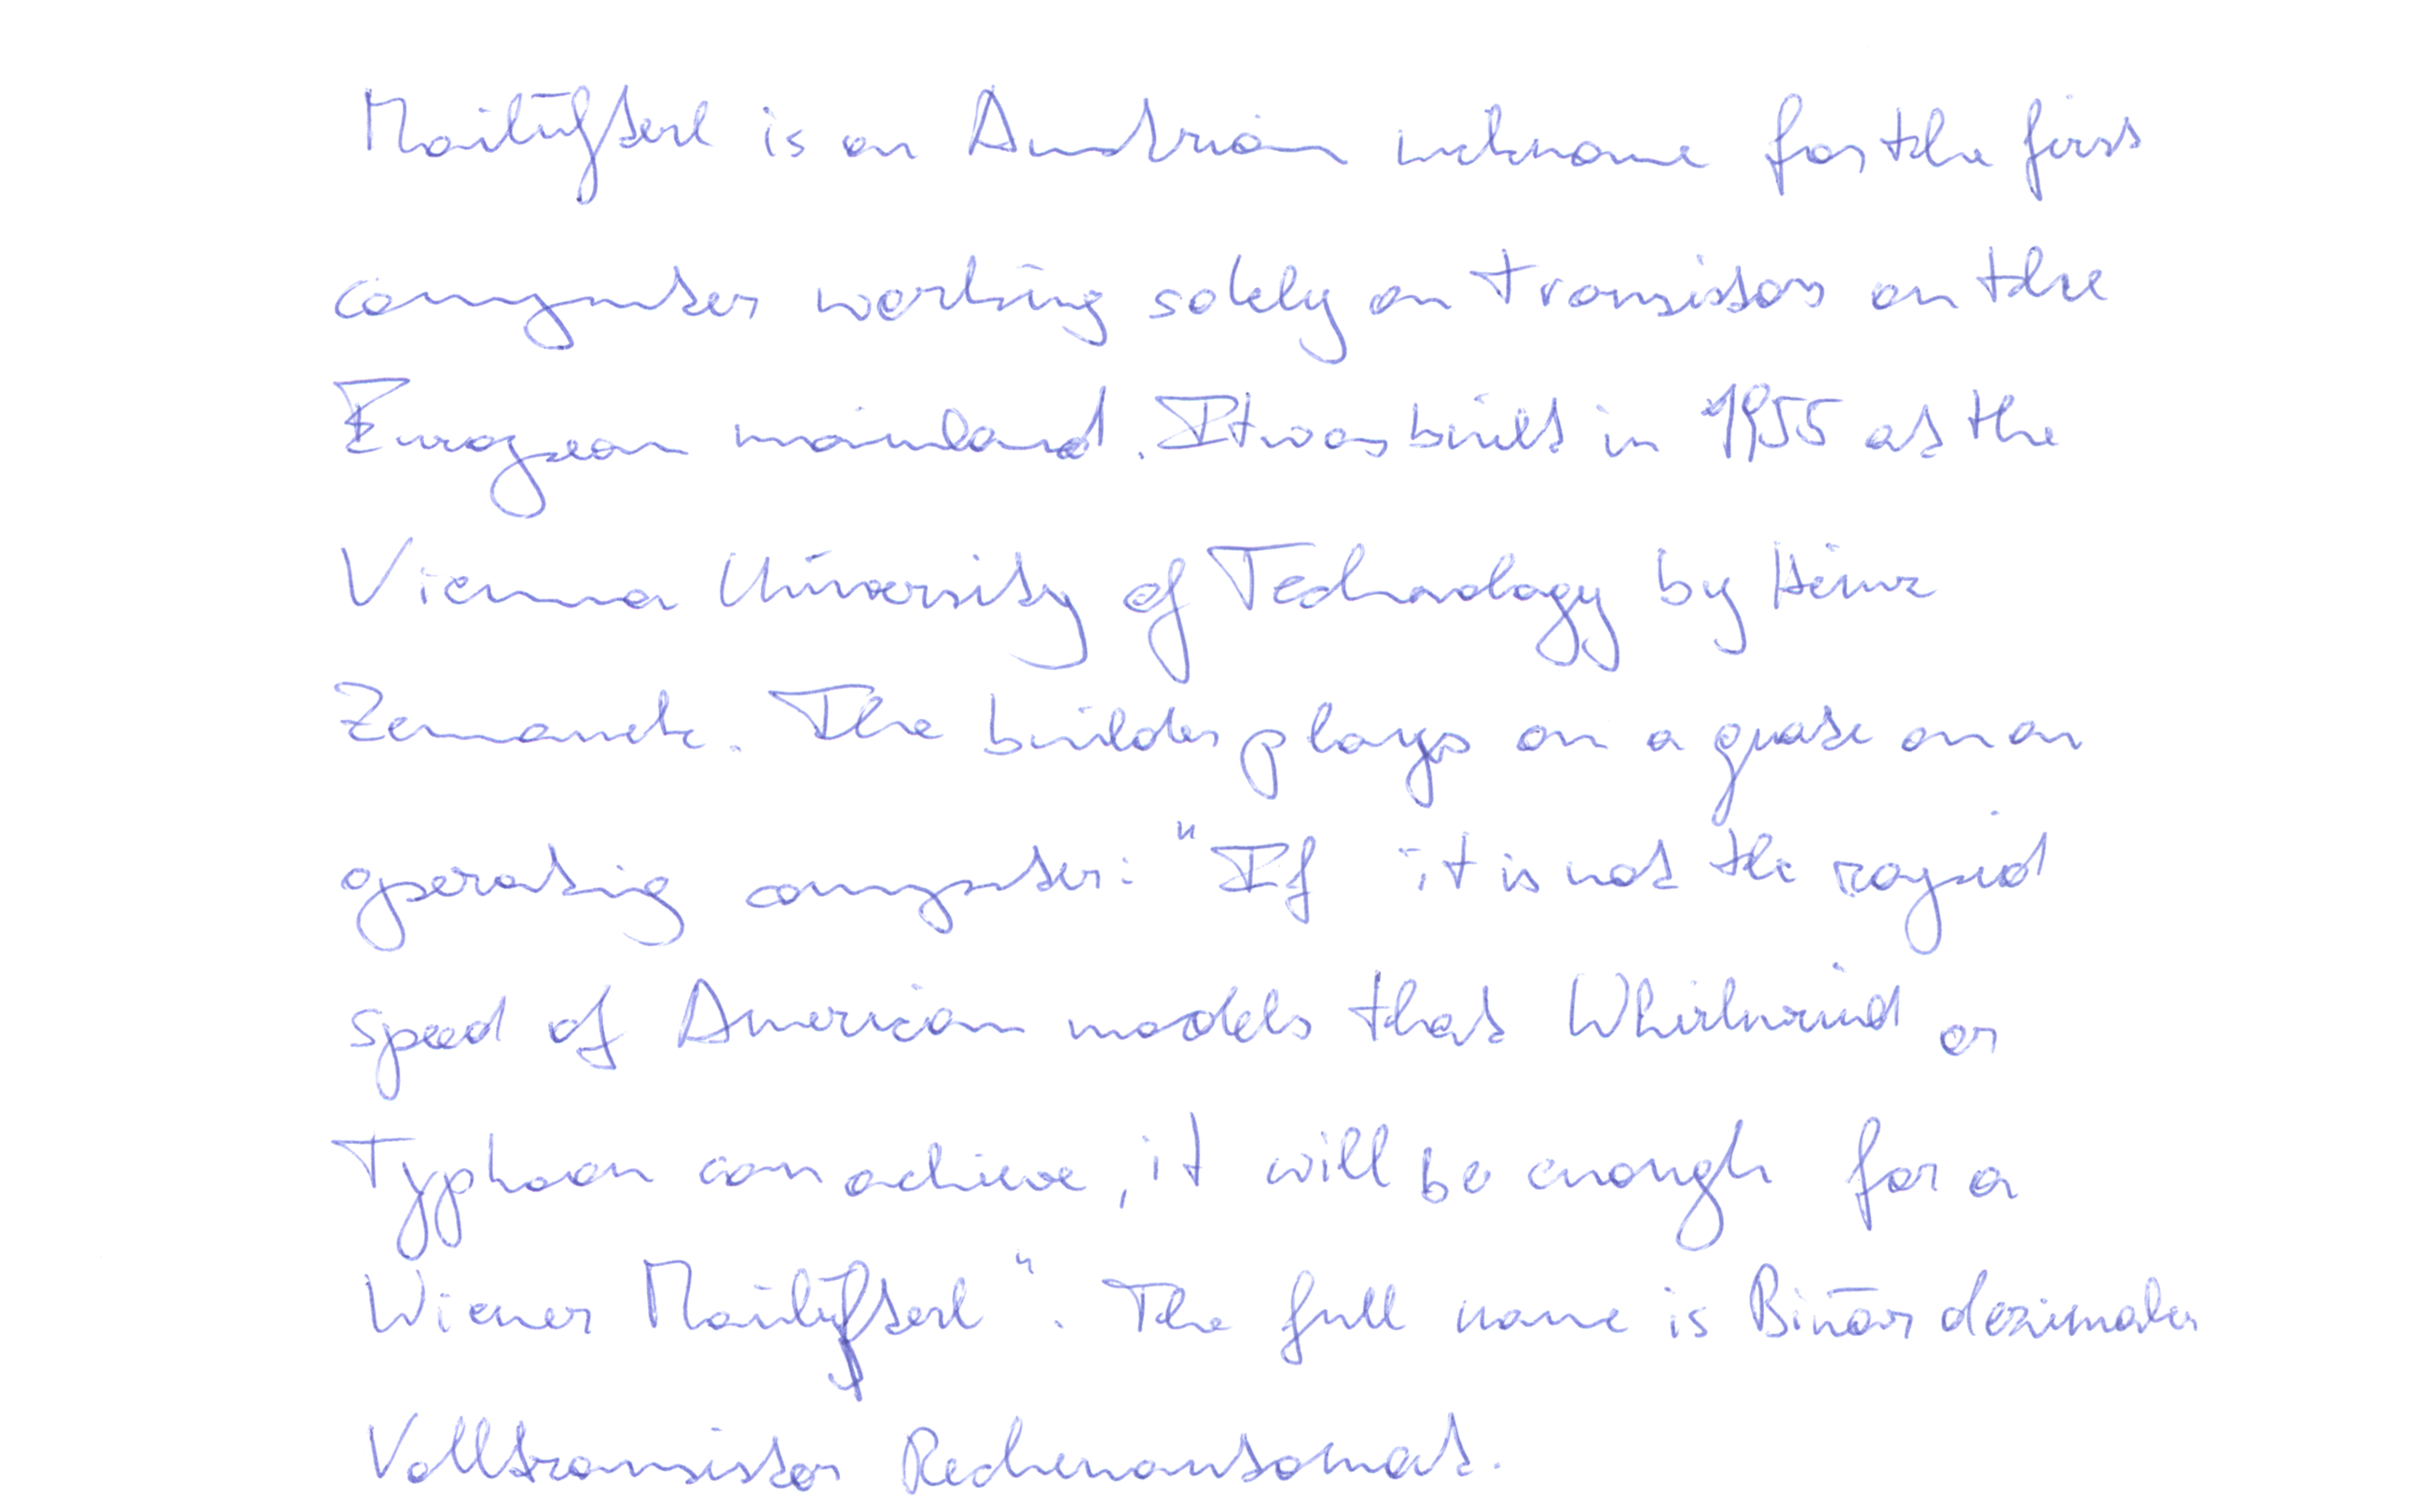 Mailüfterl is an Austrian nickname for the first
computer working solely on transistors on the
European mainland. It was built in 1955 at the
Vienna University of Technology by Heinz
Zemanek. The builder plays on a quote on an
operating computer: "If it is not the rapid
speed of American models that Whirlwind or
Typhoon can achieve, it will be enough for a
Wiener Mailüfterl". The full name is Binär dezimaler
Volltransistor Rechenautomat.